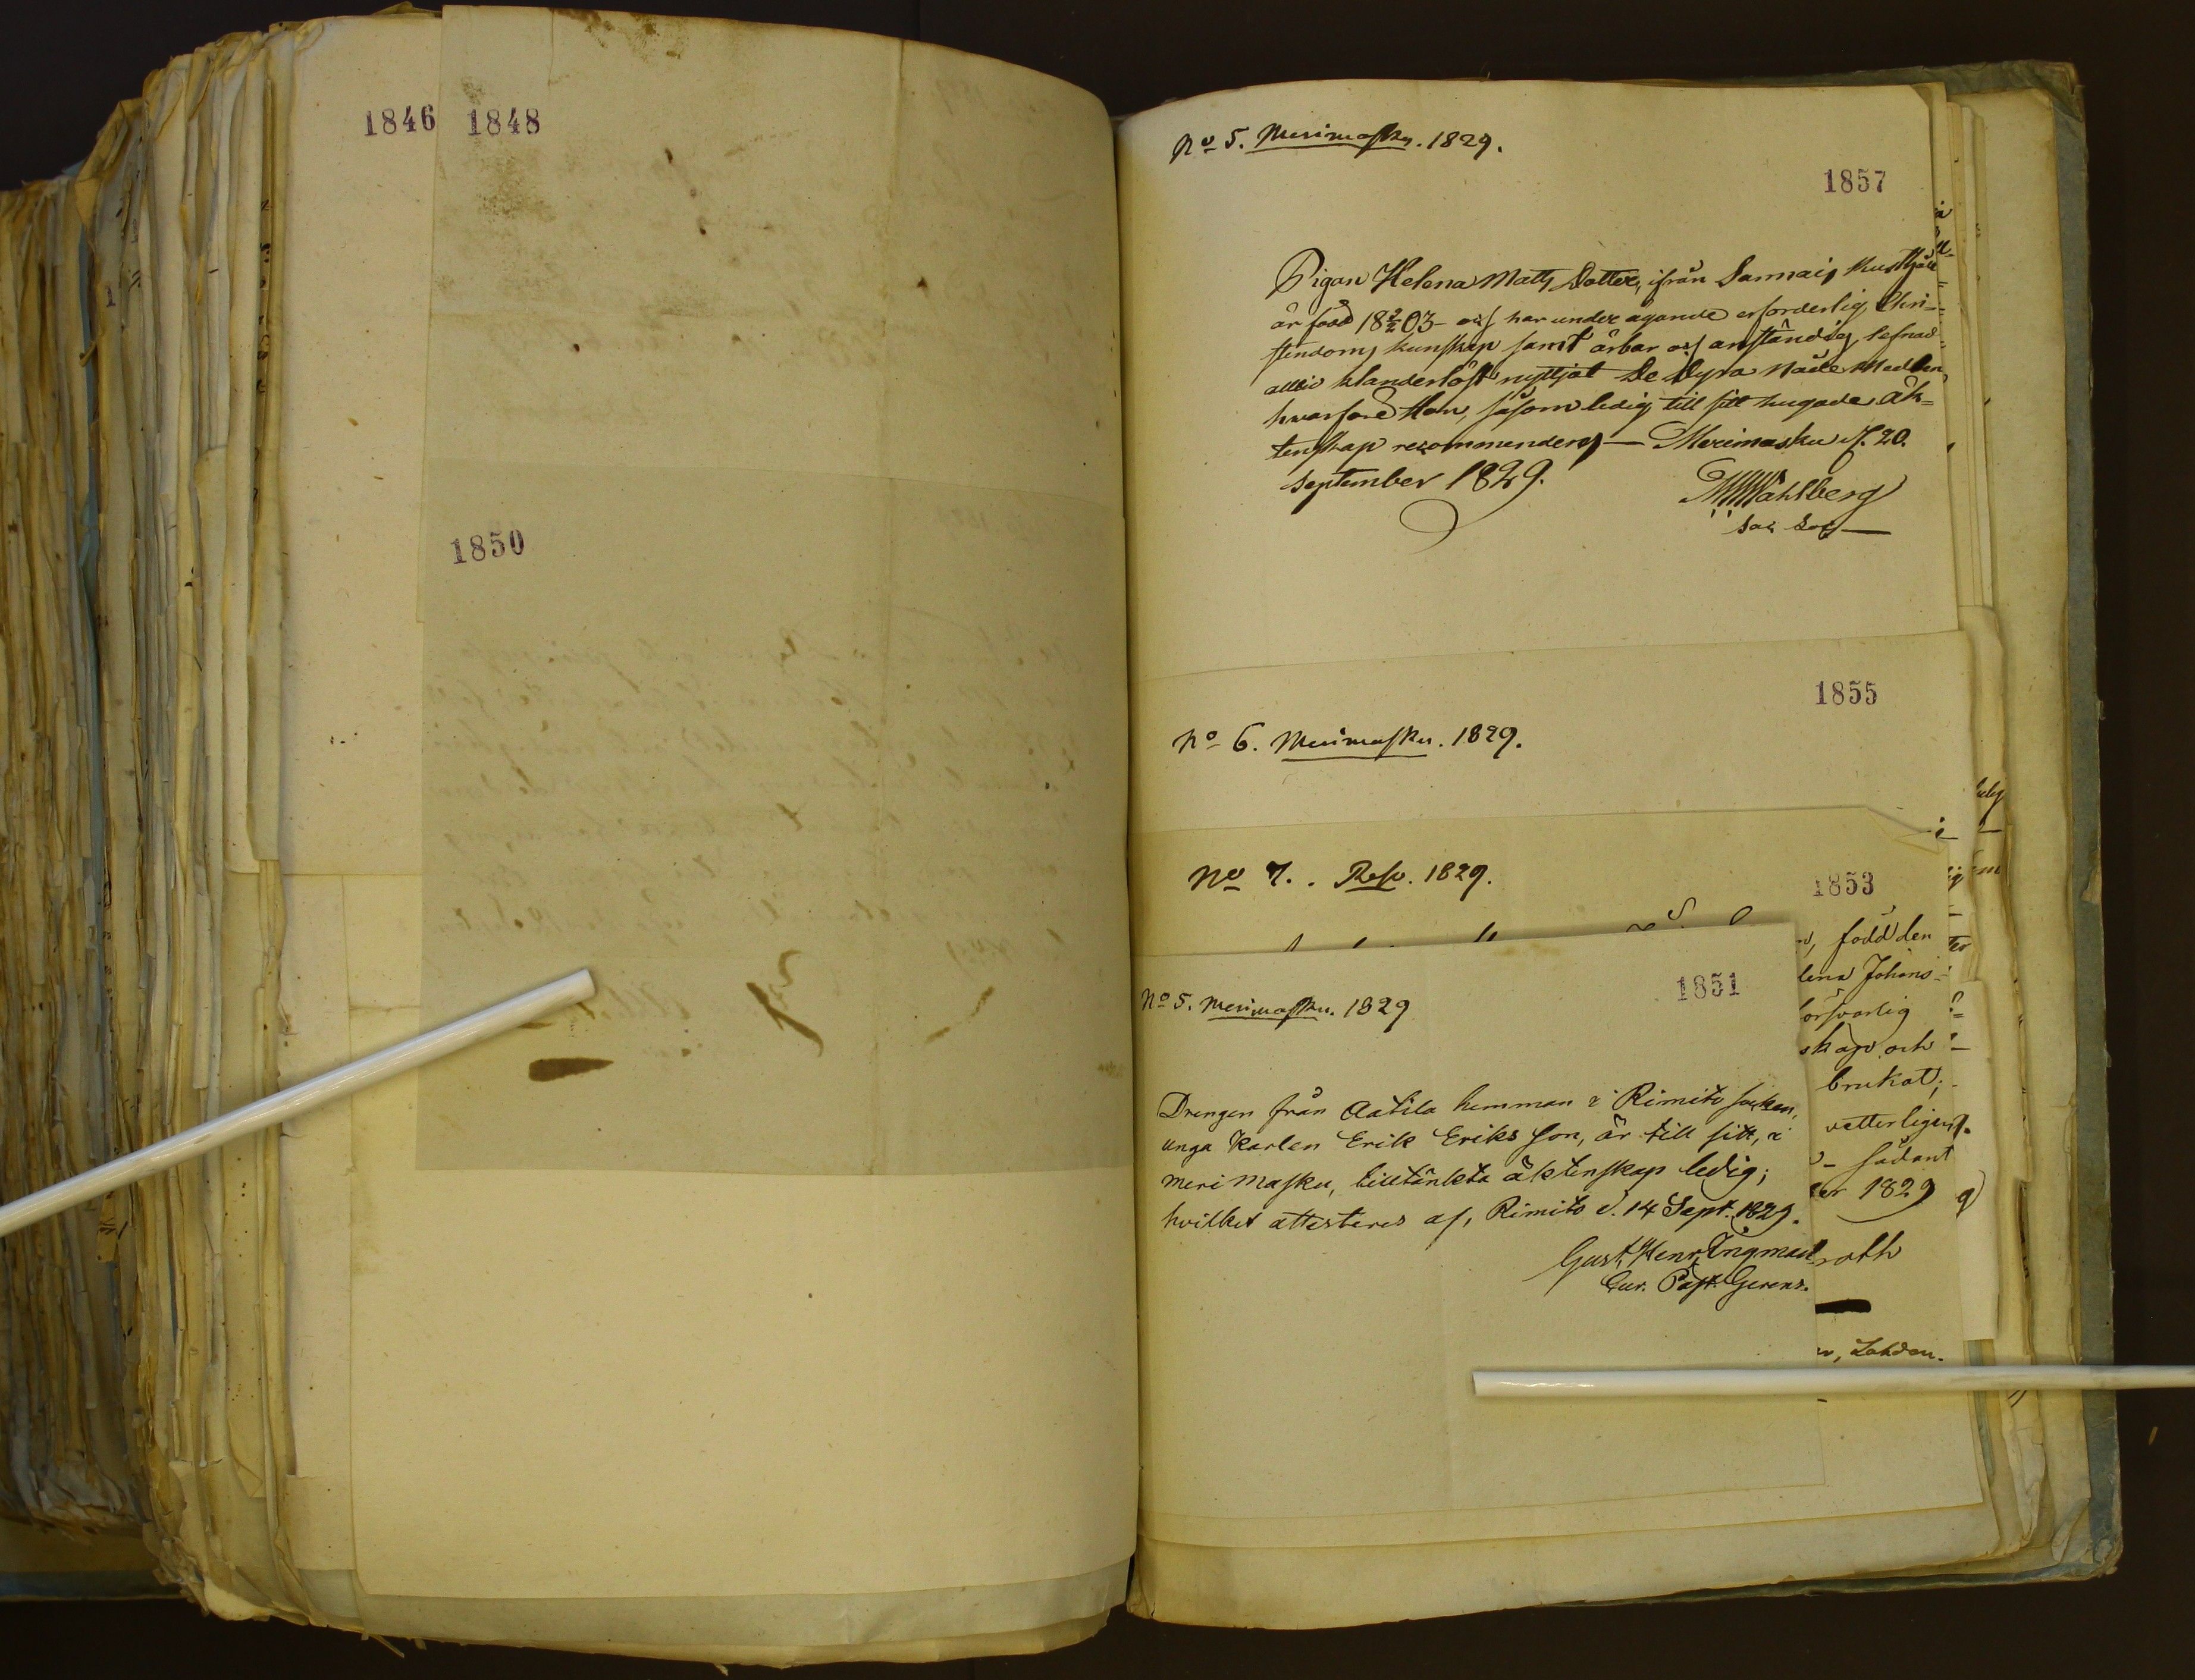 1846 1848
1850
No 5. Merimasku. 1829.
1857
Pigan Helena Matts Dotter, ifrån Sannais Kusthåll
är född 18 2/2 03 och har under ägande erforderlig Chri-
stendoms kunskap samt ärbar och anständig lefnad
alltid klanderlöst nyttjat De Dyra Nåde Medlen
hvarföre Hon, såsom ledig, till sitt hugade Äk-
tenskap recommenderas — Merimasku d. 20.
September 1829.
Wahlberg
Sac
1855
No 6. Merimasku. 1829.
No 7. Reso. 1829.
1853
född den
lena Johans-
försvarlig
skap och
brukat;
vetterligen
sådant
1829
roth
Lahden.
1851
No 5. Merimasku. 1829
Drengen från Aatila hemman i Rimito socken,
unga Karlen Erik Eriks Son, är till sitt, i
Meri Masku, tilltänkta äktenskap ledig;
hvilket attesteras af, Rimito d. 14 Sept. 1829.
Gust. Henr. Ingman
Cur. Past. Gerens.